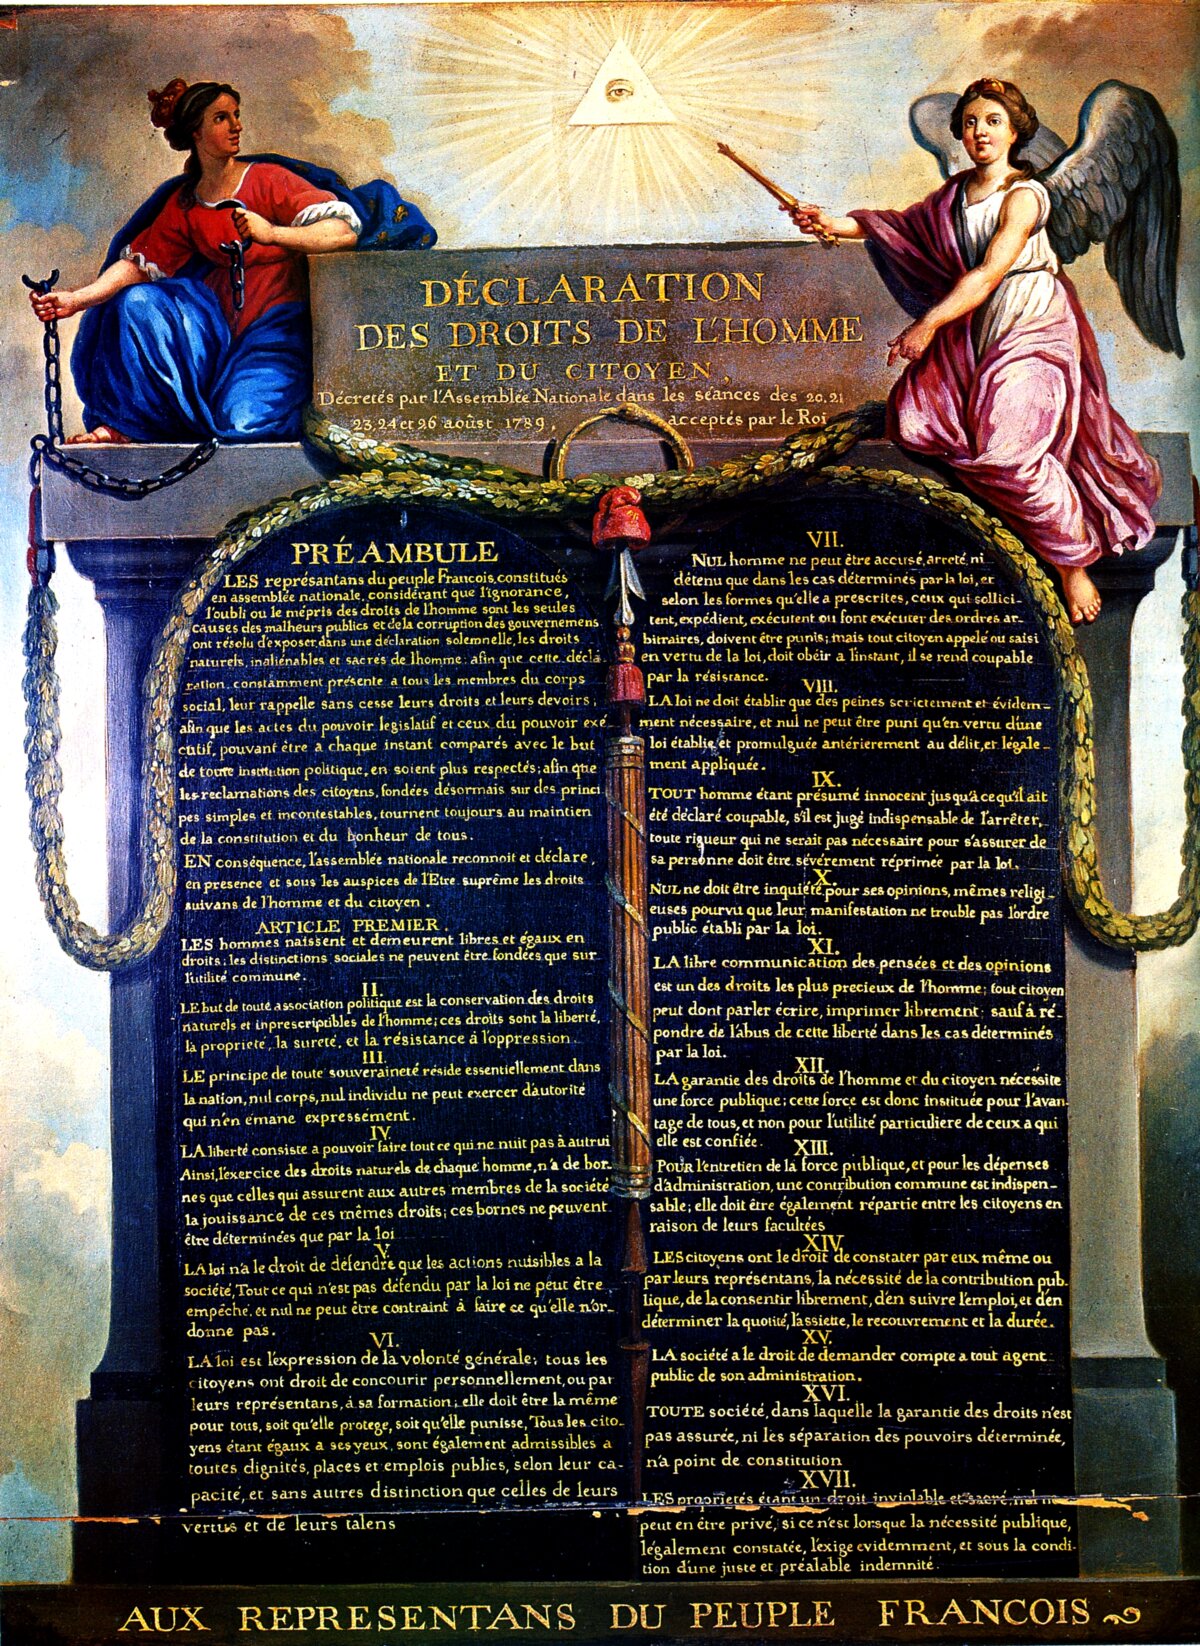 DÉCLARATION
DES DROITS DE L'HOMME
ET DU CITOYEN,
Décretés par l'Assemblée Nationale dans les séances des 20, 21
23, 24 et 26 aoûst 1789, acceptés par le Roi
PRÉAMBULE
LES représantans du peuple Francois, constitués
en assemblée nationale, considérant que l'ignorance,
l'oubli ou le mépris des droits de l'homme sont les seules
causes des malheurs publics et de la corruption des gouvernemens
ont résolu d'exposer dans une déclaration solemnelle, les droits
naturels, inaliénables et sacrés de l'homme: afin que cette décla-
ration, constamment présente a tous les membres du corps
social, leur rappelle sans cesse leurs droits et leurs devoirs;
afin que les actes du pouvoir legislatif et ceux du pouvoir exé-
cutif, pouvant être a chaque instant comparés avec le but
de toute institution politique, en soient plus respectés; afin que
les reclamations des citoyens, fondées désormais sur des princi
pes simples et incontestables, tournent toujours au maintien
de la constitution et du bonheur de tous.
EN conséquence, l'assemblée nationale reconnoit et déclare,
en presence et sous les auspices de l'Etre suprême les droits
suivans de l'homme et du citoyen.
ARTICLE PREMIER.
LES hommes naissent et demeurent libres et égaux en
droits; les distinctions sociales ne peuvent être fondées que sur
l'utilité commune.
II.
LE but de toute association politique est la conservation des droits
naturels et inprescriptibles de l'homme; ces droits sont la liberté,
la propriete, la sureté, et la résistance à l'oppression.
III.
LE principe de toute souveraineté réside essentiellement dans
la nation, nul corps, nul individu ne peut exercer d'autorité
qui n'en émane expressément.
IV.
LA liberté consiste a pouvoir faire tout ce qui ne nuit pas à autrui
Ainsi, l'exercice des droits naturels de chaque homme, n'a de bor-
nes que celles qui assurent aux autres membres de la société
la jouissance de ces mêmes droits; ces bornes ne peuvent
être déterminées que par la loi
V.
LA loi n'a le droit de défendre que les actions nuisibles a la
société, Tout ce qui n'est pas défendu par la loi ne peut être
empêché, et nul ne peut être contraint à faire ce qu'elle n'or-
donne pas.
VI.
LA loi est l'expression de la volonté générale; tous les
citoyens ont droit de concourir personnellement, ou par
leurs représentans, à sa formation; elle doit être la même
pour tous, soit qu'elle protege, soit qu'elle punisse, Tous les cito-
yens étant égaux a ses yeux, sont également admissibles a
toutes dignités, places et emplois publics, selon leur ca-
pacité, et sans autres distinction que celles de leurs
vertus et de leurs talens
VII.
NUL homme ne peut être accusé, arreté, ni
détenu que dans les cas déterminés par la loi, et
selon les formes qu'elle a prescrites, ceux qui sollici-
tent, expédient, exécutent ou font exécuter des ordres ar-
bitraires, doivent être punis; mais tout citoyen appelé ou saisi
en vertu de la loi, doit obéir a l'instant, il se rend coupable
par la résistance.
VIII.
LA loi ne doit établir que des peines strictement et évidem-
ment nécessaire, et nul ne peut être puni qu'en vertu d'une
loi établie et promulguée antérierement au délit, et légale-
ment appliquée.
IX.
TOUT homme étant présumé innocent jusqu'à ce qu'il ait
été déclaré coupable, s'il est jugé indispensable de l'arrêter,
toute rigueur qui ne serait pas nécessaire pour s'assurer de
sa personne doit être sévérement réprimée par la loi.
X.
NUL ne doit être inquiété pour ses opinions, mêmes religi-
euses pourvu que leur manifestation ne trouble pas l'ordre
public établi par la loi.
XI.
LA libre communication des pensées et des opinions
est un des droits les plus precieux de l'homme; tout citoyen
peut dont parler écrire, imprimer librement: sauf à ré-
pondre de l'abus de cette liberté dans les cas déterminés
par la loi.
XII.
LA garantie des droits de l'homme et du citoyen nécessite
une force publique; cette force est donc instituée pour l'avan-
tage de tous, et non pour l'utilité particuliere de ceux a qui
elle est confiée.
XIII.
POUR l'entretien de la force publique, et pour les dépenses
d'administration, une contribution commune est indispen-
sable; elle doit être également répartie entre les citoyens en
raison de leurs facultées
XIV.
LES citoyens ont le droit de constater par eux même ou
par leurs représentans, la nécessité de la contribution pub-
lique, de la consentir librement, d'en suivre l'emploi, et d'en
déterminer la quotité, l'assiette, le recouvrement et la durée.
XV.
LA société a le droit de demander compte a tout agent
public de son administration.
XVI.
TOUTE société, dans laquelle la garantie des droits n'est
pas assurée, ni les séparation des pouvoirs déterminée,
n'a point de constitution
XVII.
LES proprietés étant un droit inviolable et sacré, nul ne
peut en être privé, si ce n'est lorsque la nécessité publique,
légalement constatée, l'exige evidemment, et sous la condi-
tion d'une juste et préalable indemnité.
AUX REPRESENTANS DU PEUPLE FRANCOIS